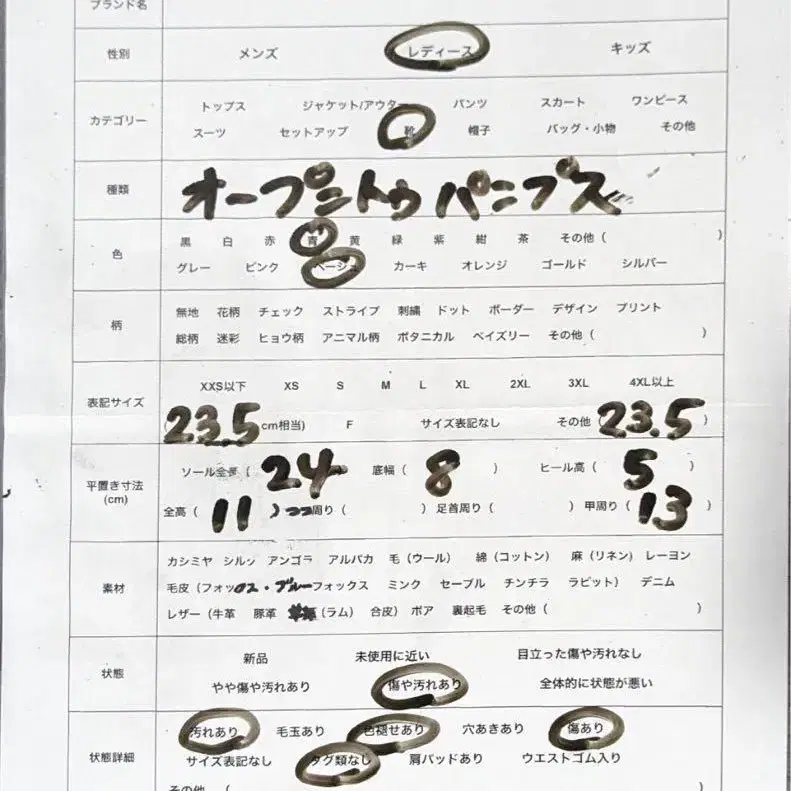 ブランド名
性別 メンズ レディース キッズ
カテゴリー
トップス ジャケット/アウター パンツ スカート ワンピース
スーツ セットアップ 靴 帽子 バッグ・小物 その他
種類 オープントゥ パンプス
色
黒 白 赤 青 黄 緑 紫 紺 茶 その他( )
グレー ピンク ベージュ カーキ オレンジ ゴールド シルバー
柄
無地 花柄 チェック ストライプ 刺繍 ドット ボーダー デザイン プリント
総柄 迷彩 ヒョウ柄 アニマル柄 ボタニカル ペイズリー その他( )
表記サイズ
XXS以下 XS S M L XL 2XL 3XL 4XL以上
(23.5cm相当) F サイズ表記なし その他(23.5)
平置き寸法
(cm)
ソール全長(24 底幅(8) ヒール高(5)
全高(11)つつ周り( )足首周り( )甲周り(13)
素材
カシミヤ シルク アンゴラ アルパカ 毛(ウール) 綿(コットン) 麻(リネン) レーヨン
毛皮(フォックス・ブルーフォックス ミンク セーブル チンチラ ラビット) デニム
レザー(牛革 豚革 (ラム) 合皮) ボア 裏起毛 その他( )
状態
新品 未使用に近い 目立った傷や汚れなし
やや傷や汚れあり 傷や汚れあり 全体的に状態が悪い
状態詳細
汚れあり 毛玉あり 色褪せあり 穴あきあり 傷あり
サイズ表記なし タグ類なし 肩パッドあり ウエストゴム入り
その他 (